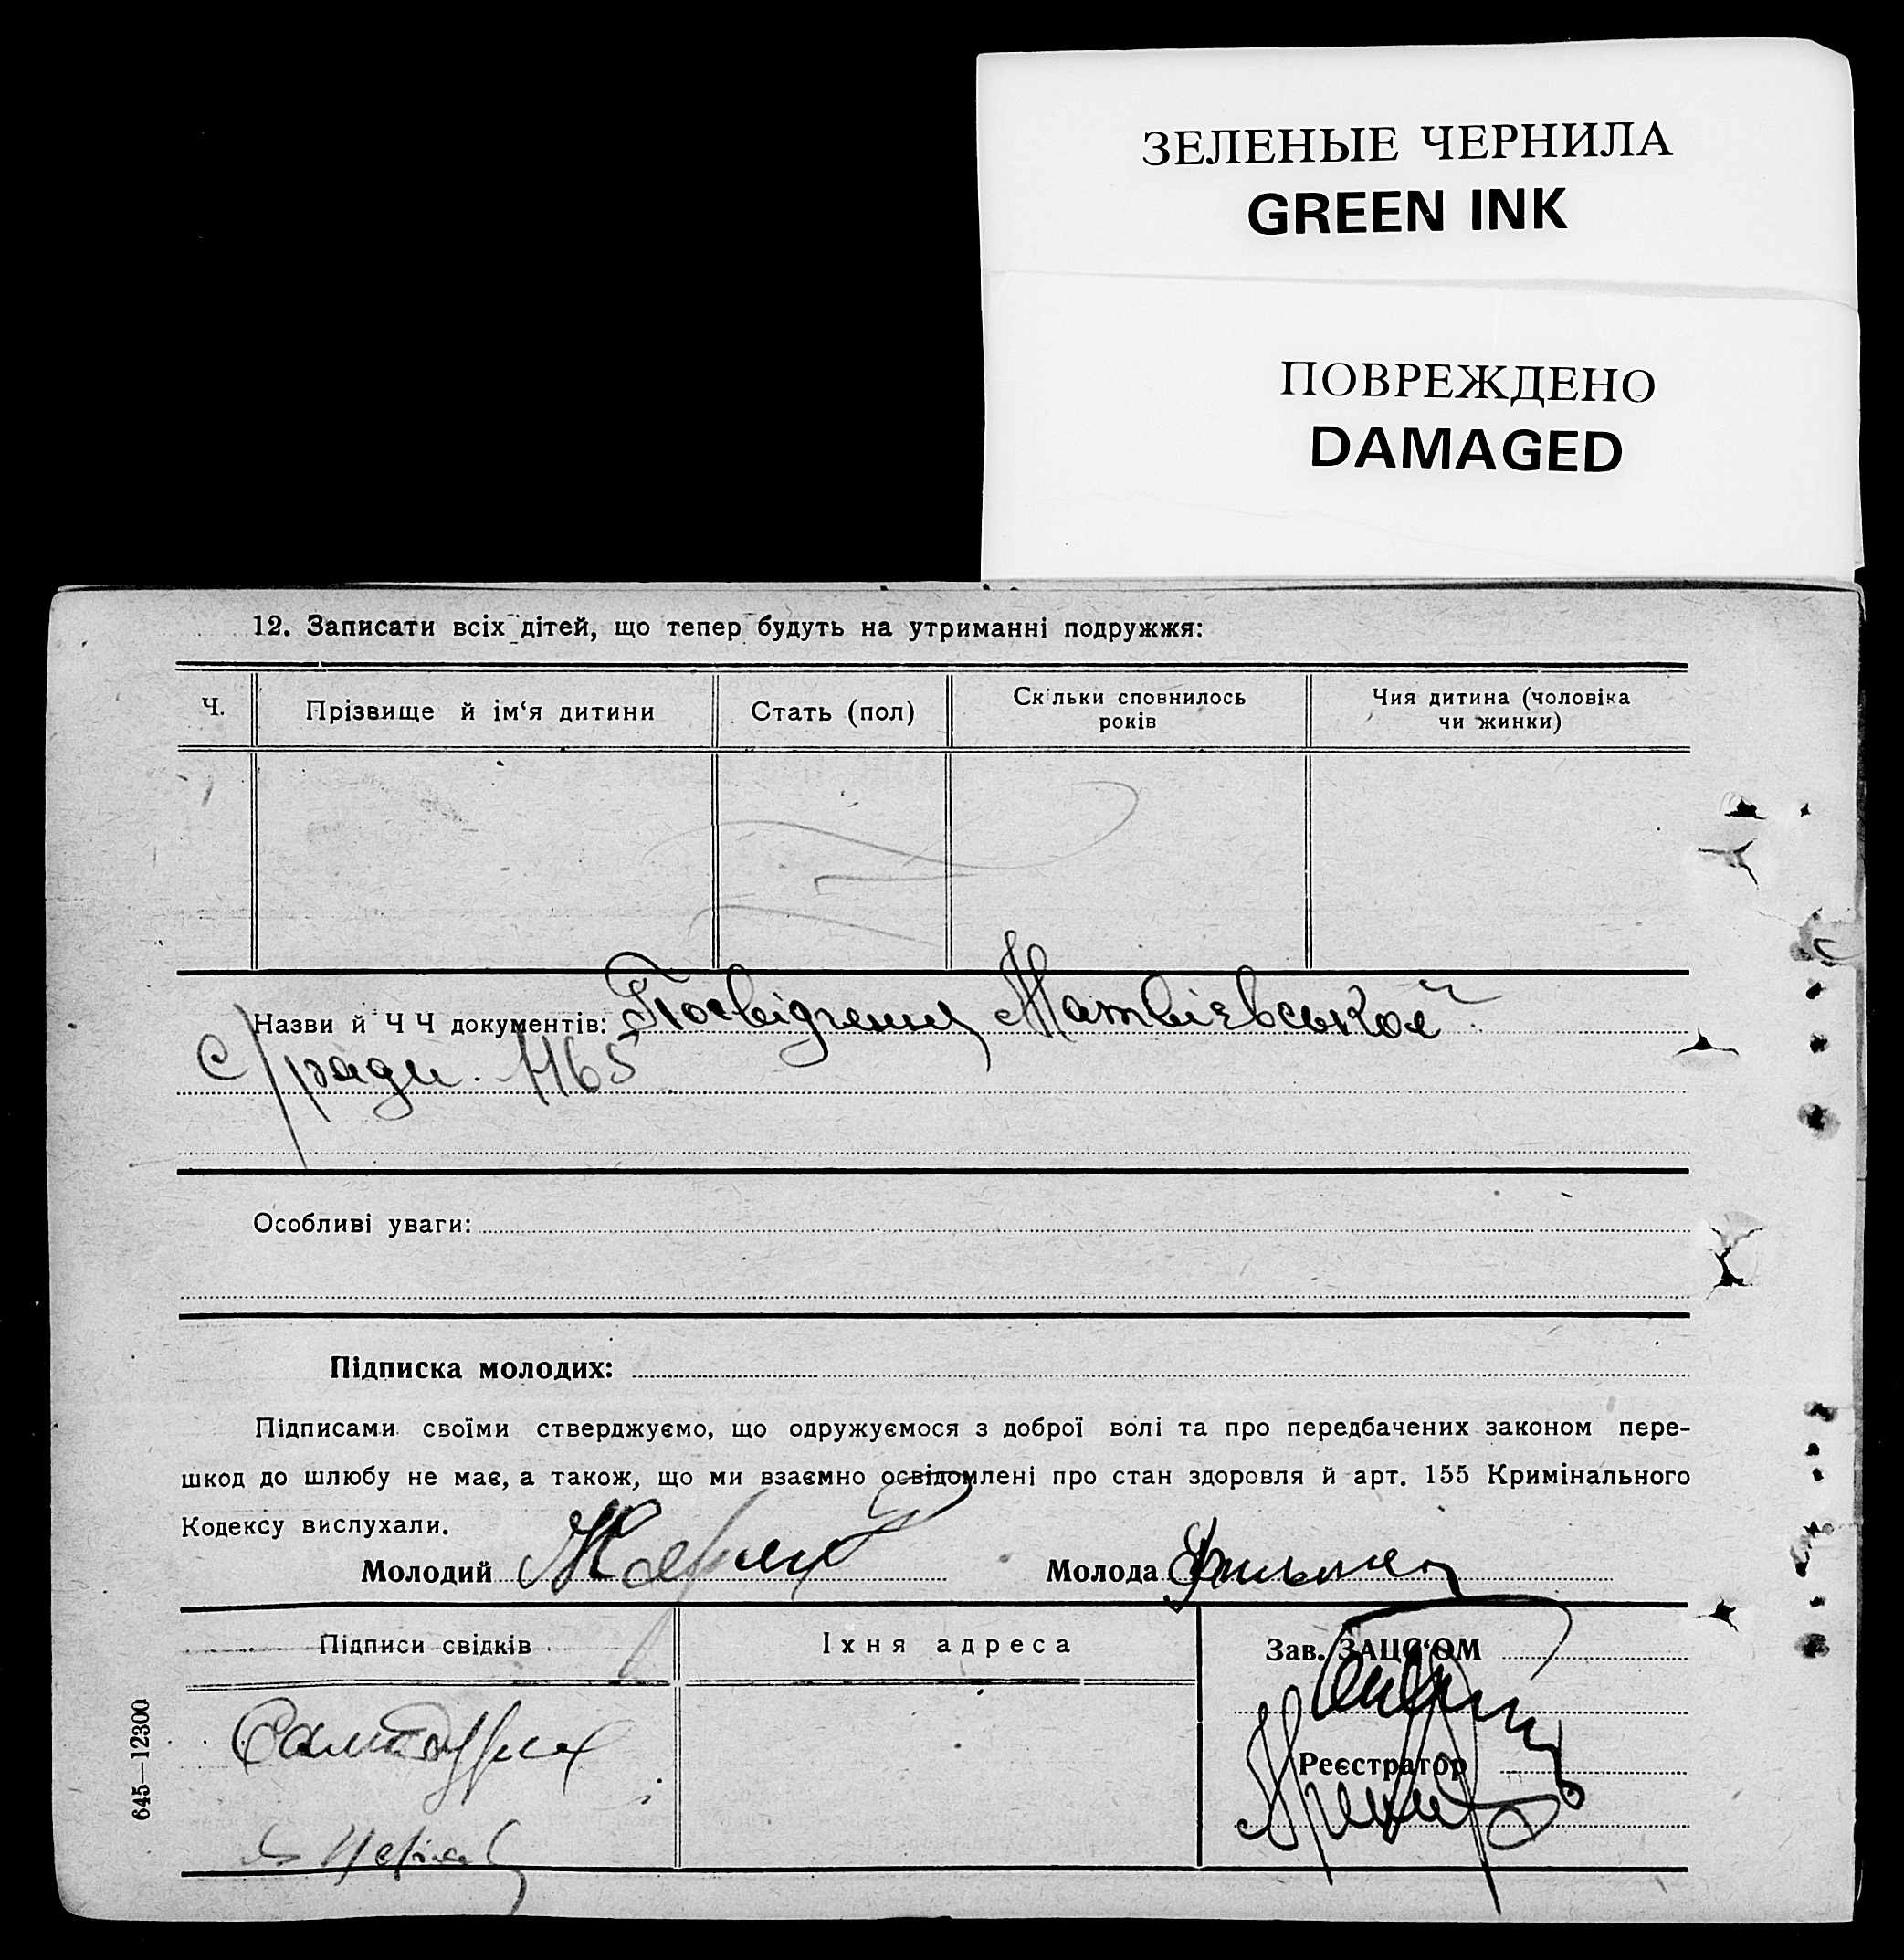 ЗЕЛЕНЫЕ ЧЕРНИЛА
GREEN INK
ПОВРЕЖДЕНО
DAMAGED
12. Записати всіх дітей, що тепер будуть на утриманні подружжя:
Ч.
Прізвище й ім‘я дитини
Стать (пол)
Скільки сповнилось
років
Чия дитина (чоловіка
чи жинки)
Назви й Ч Ч документів: Посвідчення Матвієвської
с/ради. 1165
Особливі уваги:
Підписка молодих:
Підписами своїми стверджуємо, що одружуємося з доброї волі та про передбачених законом пере-
шкод до шлюбу не має, а також, що ми взаємно освідомлені про стан здоровля й арт. 155 Кримінального
Кодексу вислухали.
Молодий
Молода
Підписи свідків
Їхня адреса
Зав. ЗАЦС‘ОМ
Реєстратор
645—12300